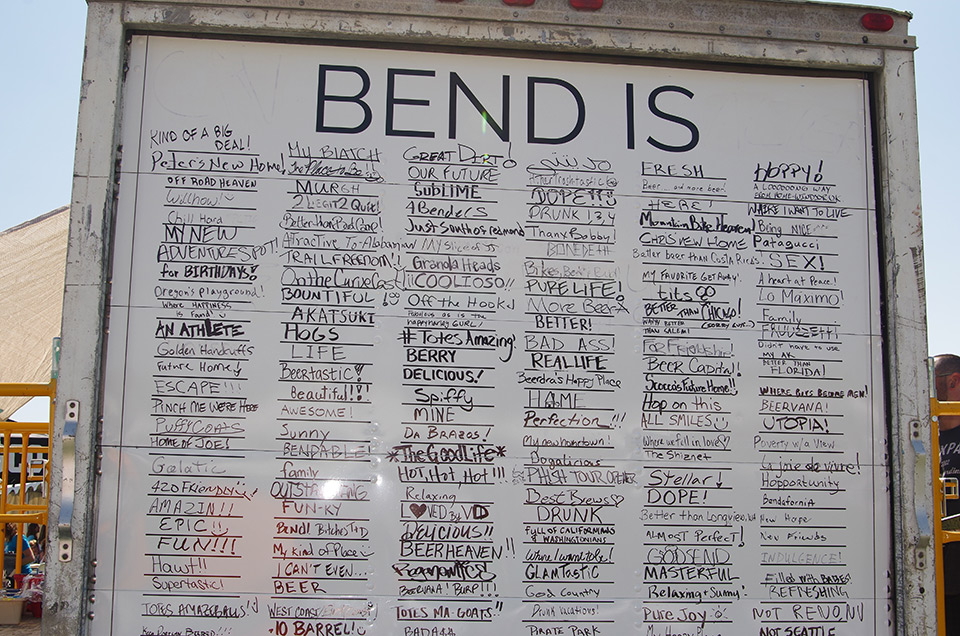 BEND IS
KIND OF A BIG
DEAL!
Peter's New Home!
OFF ROAD HEAVEN
Willhow!
Chill Hard
MY NEW
ADVENTURE SPOT!
for BIRTHDAYS!
Oregon's playground!
Where HAPPINESS
is found!
AN ATHLETE
Golden Handcuffs
Future Home
ESCAPE!!!
PINCH ME WE'RE HERE
PUFFYCOATS
HOME OF JOE!
Galatic
420 FRIENDly
AMAZIN!!
EPIC
FUN!!!
Hawt!!
Supertastic!
TOTES AMAZEBALLS!
MY BIATCH
The Place to Be!!
MURGH
2 LEGIT 2 QUIT!
Attractive To Alabaman
TRAIL FREEDOM!!
BOUNTIFUL!
AKATSUKI
HOGS
LIFE
Beertastic!
Beautiful!!
AWESOME!
Sunny
BENDABLE!
family
OUTSTANDING
FUN-KY
BEND! Bitches
My kind of Place
I CAN'T EVEN...
BEER
WEST COAST
10 BARREL!
GREAT DIRT!
OUR FUTURE
SUBLIME
4 Benders
Just South of redmond
MY Slice of
Granola Heads
COOLIOSO!!
Off the Hook!
Fabulous as is the
#Totes Amazing!
BERRY
DELICIOUS!
Spiffy
MINE
DA BRAZOS!
*The GOOD LIFE*
HOT, HOT, HOT!!!
Relaxing
LOVED BY
DELICIOUS!!
BEER HEAVEN!!
BEERVANA! BURP!!!
TOTES MA-GOATS!!
BADASS
JO
DOPE!!!
DRUNK 1,3,4
Thanx Bobby!
PURE LIFE!
More Beer
BETTER!
BAD ASS!
REAL LIFE
Beerdra's Happy Place
HOME
Perfection!!!
My new hometown!
Bogalicious
PHISH TOUR OPENER
Best Brews
DRUNK
FULL OF CALIFORNIANS
& WASHINGTONIANS
Where I want to be!
GLAMTASTIC
Good Country
Drunk Vacations!
PIRATE PARK
FRESH
Beer... and more beer!
HERE!
Mountain Bike Heaven!
CHRIS NEW HOME
Better beer than Costa Rica!
MY FAVORITE GETAWAY!
tits
BETTER THAN CHICAGO!
WAYY BETTER
THAN SALEM!
For Friendship!
BEER Capital!!
Scocca's Future Home!!
Hop on this
ALL SMILES
Where we fell in love
The Shiznet
Stellar
DOPE!
Better than Longview, WA
ALMOST Perfect!
GODSEND
MASTERFUL
Relaxing + Sunny!
PURE JOY
HOPPY!
A LOOOOONG WAY
WHERE I WANT TO LIVE
Being NICE
Patagucci
SEX!
A heart at Peace!
Lo Maximo!
Family
Didn't have to use
my AK
BETTER THAN
FLORIDA!
WHERE BOYS BECOME MEN!
BEERVANA!
UTOPIA!
Poverty w/ a View
la joie de vivre!
Hopportunity
Bendafornia
New Hope
New Friends
INDULGENCE!
Filled with BABES!
REFRESHING
NOT RENO, NV
NOT SEATTLE